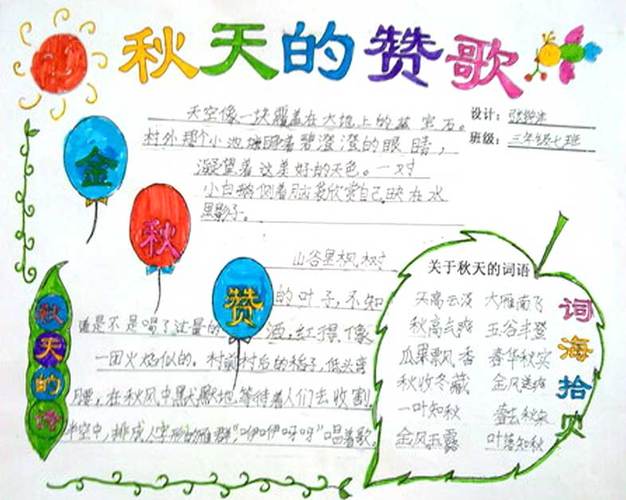 秋天的赞歌
设计：
班级：三年级七班
天空像一块覆盖在大地上的蓝宝石。
村外那个小池塘睁着碧澄澄的眼睛，
凝望着这美好的天色。一对
小白鹅侧着脑袋欣赏自己映在水
里影子。
金
秋
赞
山谷里枫树
的叶子，不知
谁是不是喝了过量的酒，红得像
一团火焰似的。村前村后的稻子，低头弯
腰，在秋风中默默地等待着人们去收割
半空中，排成人字形的雁群，"咿咿呀呀"唱着歌。
秋天的诗
关于秋天的词语
天高云淡 大雁南飞
秋高气爽 五谷丰登
瓜果飘香 春华秋实
秋收冬藏 金风送爽
一叶知秋 春去秋来
金风玉露 叶落知秋
词海拾贝